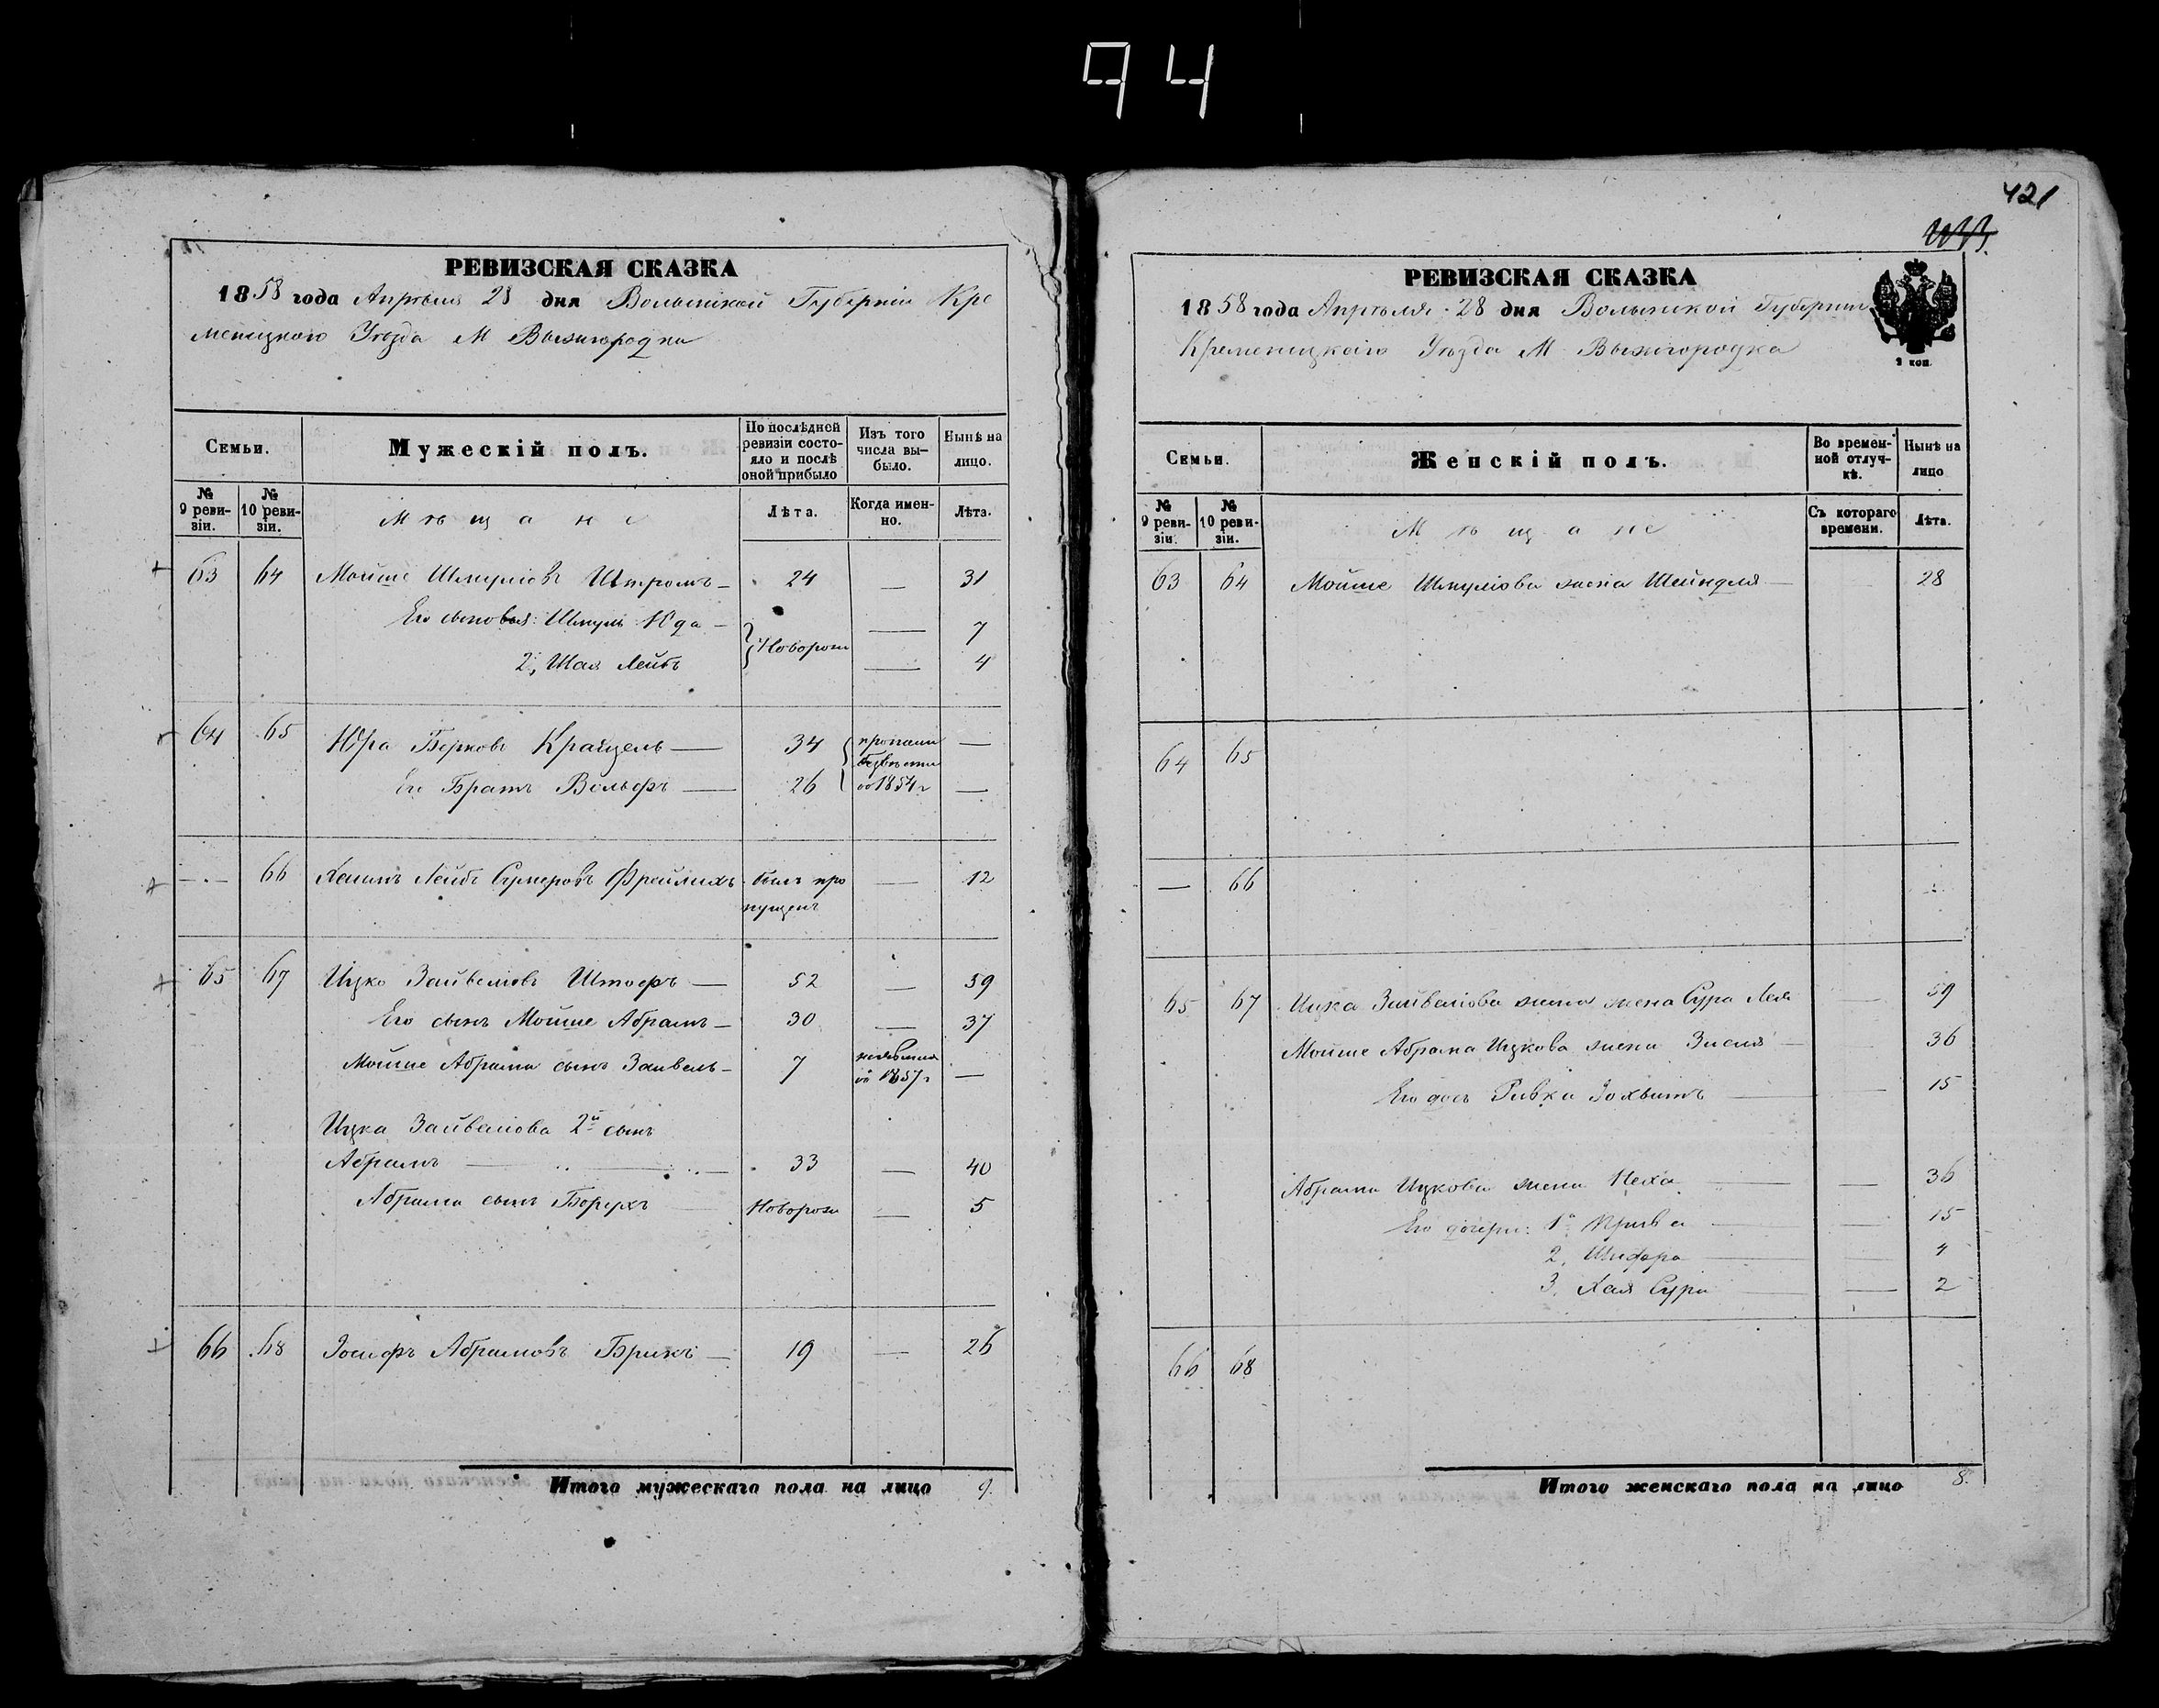 94
РЕВИЗСКАЯ СКАЗКА
1858 года Апрѣля 28 дня Волынской Губерніи Кре
менецкого Уѣзда М Вышгородки
Семьи.
Мужескій полъ.
По послѣдней ревизіи состояло и послѣ оной прибыло
Изъ того числа выбыло.
Нынѣ на лицо.
№ 9 ревизіи.
№ 10 ревизіи.
Мѣщане
Лѣта.
Когда именно.
Лѣта.
63 64 Мойше Шмулювъ Штромъ — 24 — 31
Его сыновья: Шмуль Юда — Новорож — 7
2, Шая Лейбъ — 4
64 65 Юра Берковъ Крайцель — 34 пропали —
безвѣсти
Его Братъ Вольфъ — 26 1854 г —
— 66 Хаимъ Лейбъ Сумеровъ Фрейлихъ былъ про — 12
пущенъ
65 67 Ицко Зайвелювъ Штофъ — 52 — 59
Его сынъ Мойше Абрамъ — 30 — 37
Мойше Абрама сынъ Зайвель — 7 —
1857 г
Ицка Зайвелюва 2й сынъ
Абрамъ — 33 — 40
Абрама сынъ Борухъ Новорож — 5
66 68 Іосифъ Абрамовъ Брикъ — 19 — 26
Итого мужескаго пола на лицо 9.
421
РЕВИЗСКАЯ СКАЗКА
1858 года Апрѣля 28 дня Волынской Губерніи
Кременецкаго Уѣзда М Вышгородка
2 коп.
Семьи.
Женскій полъ.
Во временной отлучкѣ.
Нынѣ на лицо
№ 9 ревизіи.
№ 10 ревизіи.
Мѣщане
Съ котораго времени.
Лѣта.
63 64 Мойше Шмулюва жена Шейндля — 28
64 65
— 66
65 67 Ицка Зайвелюва жена Сура Лея — 59
Мойше Абрама Ицкова жена Зисля — 36
Его дочь Ривка — 15
Абрама Ицкова жена Неха — — 36
Его дочери: 1я — — 15
2, Шифра — — 4
3, Хая Сура — — 2
66 68
Итого женскаго пола на лицо 8.